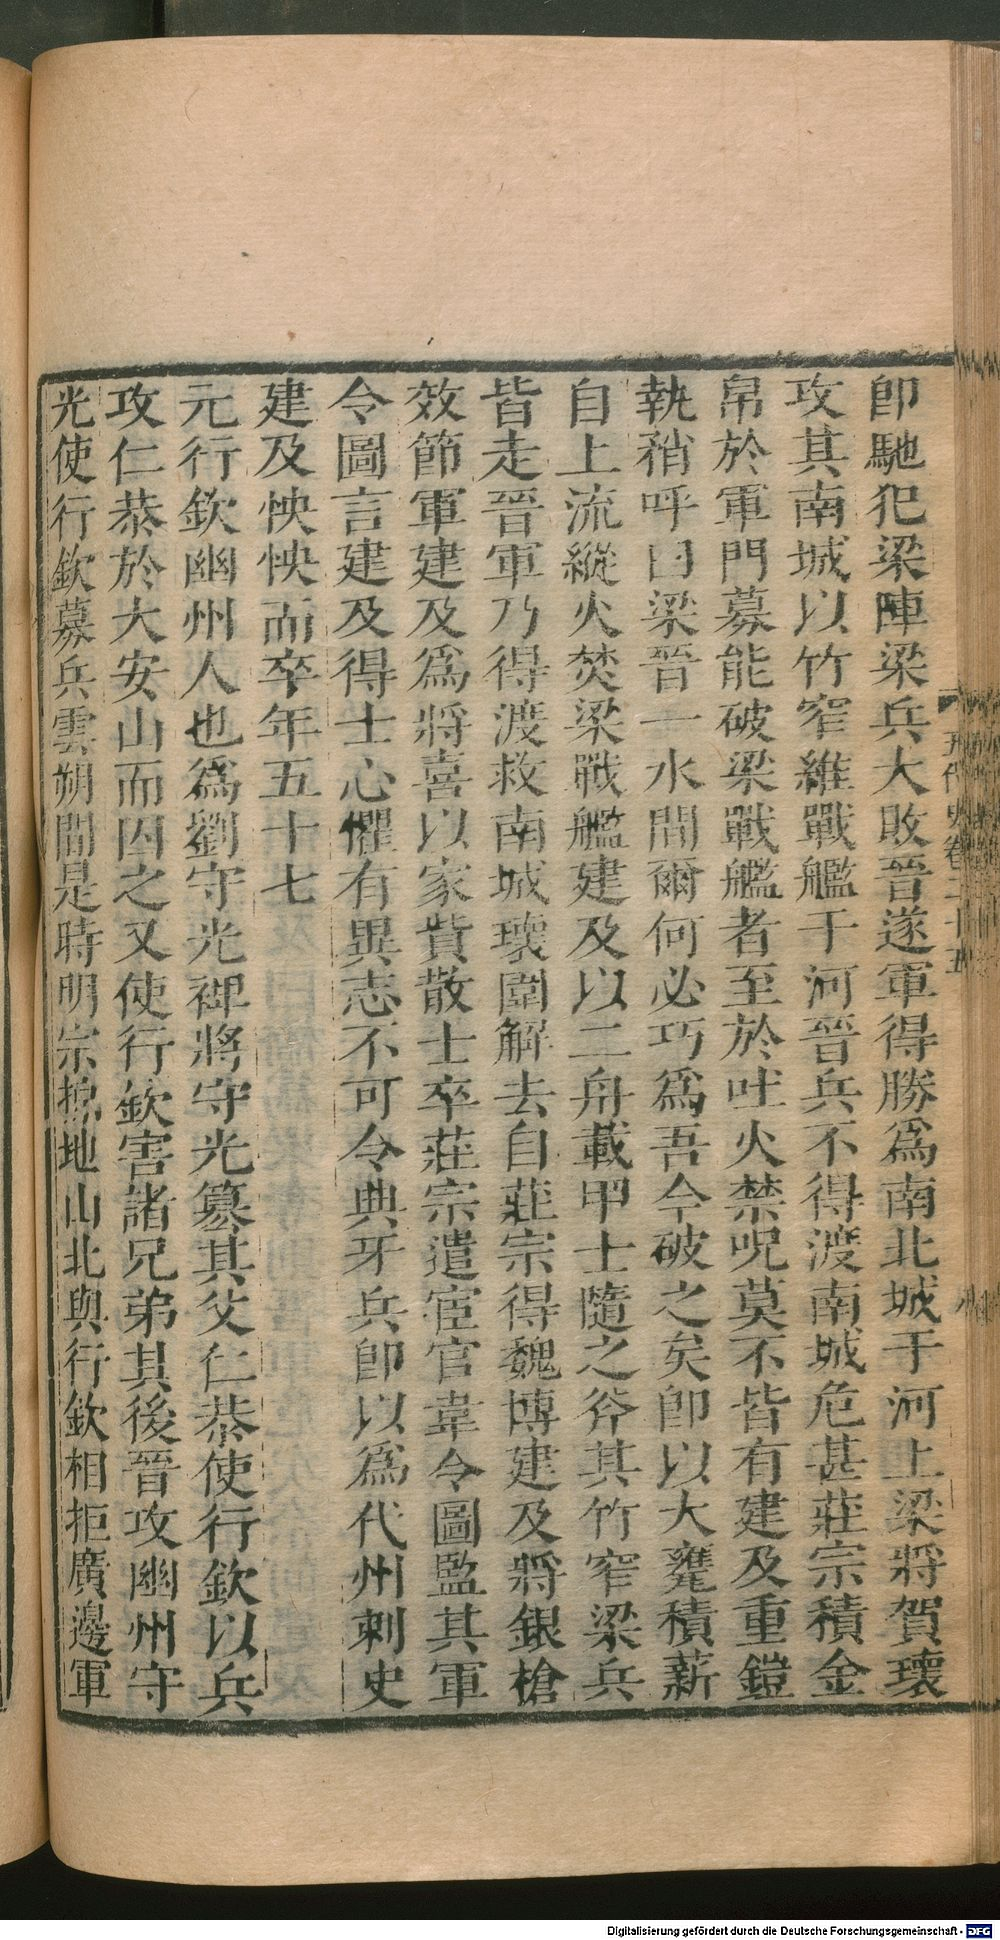 卽馳犯梁陣梁兵大敗晉遂軍得勝爲南北城于河上梁將賀瓌
攻其南城以竹窄維戰艦于河晉兵不得渡南城危甚莊宗積金
帛於軍門募能破梁戰艦者至於吐火禁呪莫不皆有建及重鎧
執矟呼曰梁晉一水間爾何必巧爲吾今破之矣卽以大甕積薪
自上流縱火焚梁戰艦建及以二舟載甲士隨之斧其竹窄梁兵
皆走晉軍乃得渡救南城瓌圍解去自莊宗得魏博建及將銀槍
效節軍建及爲將喜以家貲散士卒莊宗遣宦官韋令圖監其軍
令圖言建及得士心懼有異志不可令典牙兵卽以爲代州刺史
建及怏怏而卒年五十七
元行欽幽州人也爲劉守光裨將守光篡其父仁恭使行欽以兵
攻仁恭於大安山而囚之又使行欽害諸兄弟其後晉攻幽州守
光使行欽募兵雲朔間是時明宗掠地山北與行欽相拒廣邊軍
五代史卷二十五
Digitalisierung gefördert durch die Deutsche Forschungsgemeinschaft - DFG